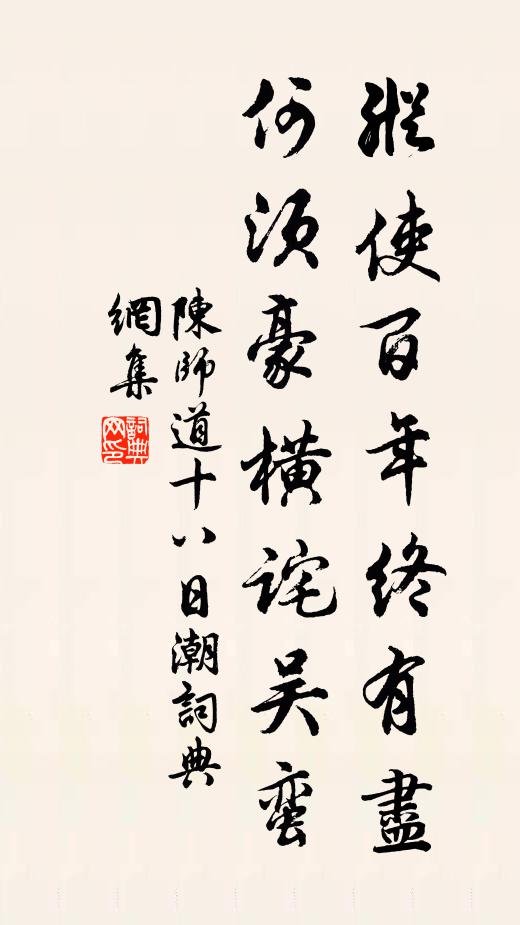 縱使百年終有盡
何須豪橫詫吳蛮
陳師道十八日潮詞典
網集
詞典
网印